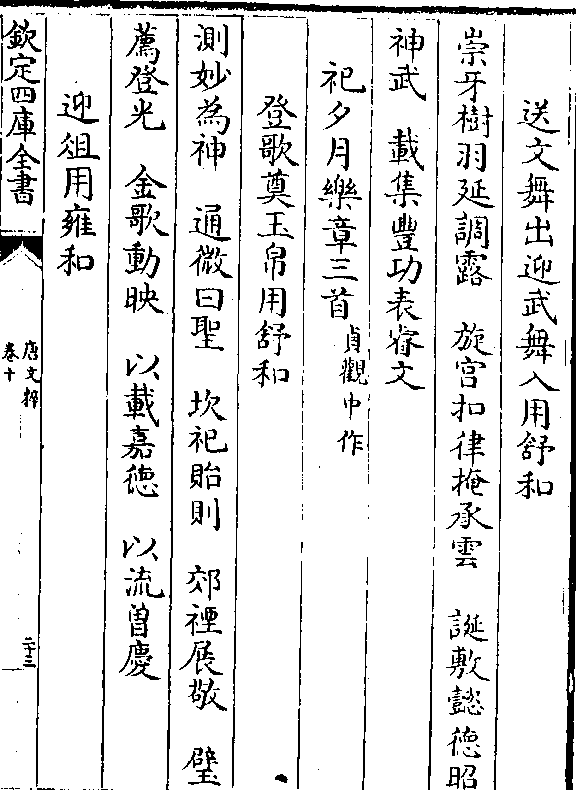 送文舞出迎武舞入用舒和
崇牙樹羽延調露　旋宫扣律掩承雲　誕敷懿德昭
神武　載集豐功表睿文
祀夕月樂章三首貞觀中作
登歌奠玉帛用舒和
測妙為神　通微曰聖　坎祀貽則　郊禋展敬　璧
薦登光　金歌動映　以載嘉德　以流曽慶
迎俎用雍和
欽定四庫全書
唐文粹
卷十
二十三